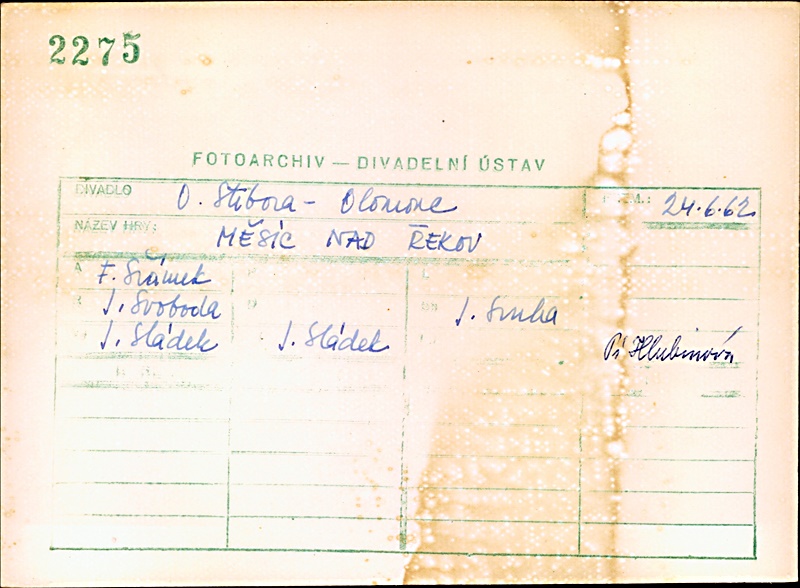 2275
FOTOARCHIV — DIVADELNÍ ÚSTAV
DIVADLO O. Stibora - Olomouc 24.6.62.
NÁZEV HRY: MĚSÍC NAD ŘEKOU
A F. Šrámek
R J. Svoboda J. Sruha
J. Sládek J. Sládek Pí Hlubinová